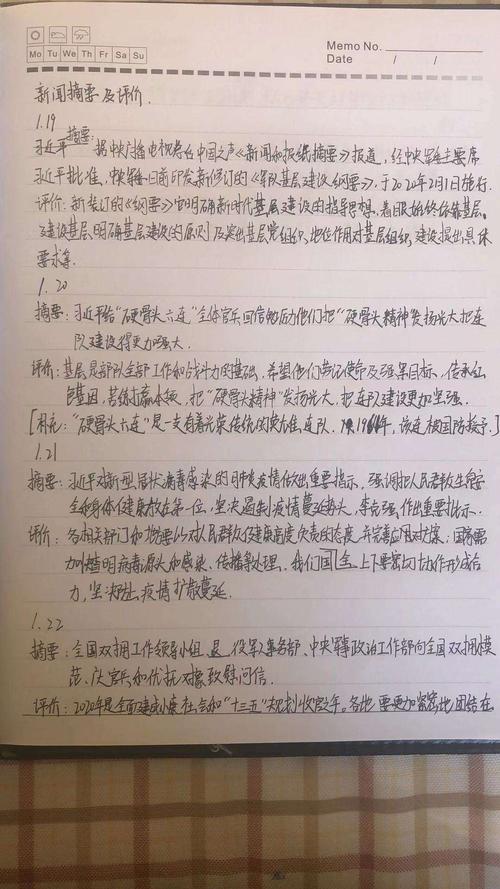 Memo No.
Mo Tu We Th Fr Sa Su
Date / /
新闻摘要及评价.
1.19
摘要:
习近平 据中央广播电视总台中国之声《新闻和报纸摘要》报道, 经中央军委主席
习近平批准, 中央军委日前印发新修订的《军队基层建设纲要》, 于2020年2月1日施行.
评价: 新装订的《纲要》明确新时代基层建设的指导思想, 着眼始终依靠基层.
建设基层, 明确基层建设的原则及突出基层党组织, 地位作用对基层组织, 建设提出具体
要求等.
1.20
摘要: 习近平给“硬骨头六连”全体官兵回信勉励他们把“硬骨头精神发扬光大把连
队建设得更加强大.
评价: 基层是部队全部工作和战斗力的基础, 希望他们牢记使命及强军目标, 传承红
色基因, 苦练打赢本领, 把“硬骨头精神”发扬光大, 把连队建设更加坚强.
[补充: “硬骨头六连”是一支有着光荣传统的英雄连队, 1964年, 该连被国防授予.]
1.21
摘要: 习近平对新型冠状病毒感染的肺炎疫情作出重要指示, 强调把人民群众生命安
全和身体健康放在第一位, 坚决遏制疫情蔓延势头, 李克强作出重要批示.
评价: 各相关部门和 要以对人民群众健康高度负责的态度, 并完善应对方案;国家需
加 明病毒源头和感染、传播等处理, 我们国 上下要密切协作形成合
力, 坚决防止疫情扩散蔓延.
1.22
摘要: 全国双拥工作领导小组、退役军人事务部、中央军委政治工作部向全国双拥模
范、广大官兵和优抚对象致慰问信.
评价: 2020年是全面建成小康社会和“十三五”规划收官之年。各地要更加紧密地团结在